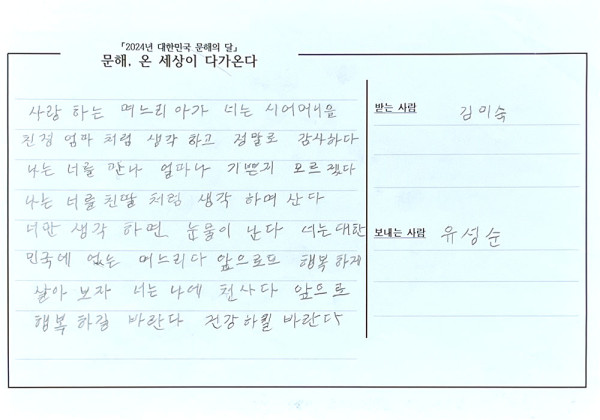 『2024년 대한민국 문해의 달』
문해, 온 세상이 다가온다
사랑 하는 며느리 아가 너는 시어머니을
친정 엄마 처럼 생각 하고 정말로 감사하다
나는 너를 만나 얼마나 기쁜지 모르 겠다
나는 너를 친딸 처럼 생각 하며 산다
너만 생각 하면 눈물이 난다 너는 대한
민국에 없는 며느리다 앞으로도 행복 하게
살아 보자 너는 나에 천사다 앞으로
행복 하길 바란다 건강하길 바란다
받는 사람 김미숙
보내는 사람 유성순